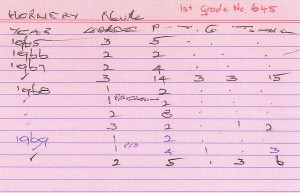 HORNERY Neville 1st Grade No. 645
YEAR GRADE P T G T
1965 3 5 . . .
1966 2 2 . . .
1967 2 4 . . .
✓ 3 14 3 3 15
1968 1 2 . . .
✓ 1 2 .
✓ 2 8 . . .
✓ 3 2 . 1 2
1969 1 2 . . .
✓ 1 P/S 4 1 . 3
✓ 2 5 . 3 6